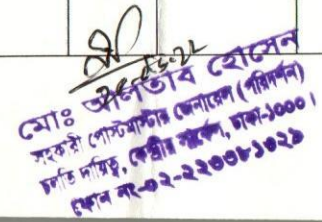 মোঃ আলতাব হোসেন
সহকারী পোস্টমাস্টার জেনারেল (পরিদর্শন)
চলতি দায়িত্ব, কেন্দ্রীয় সার্কেল, ঢাকা-১০০০।
ফোন নং-০২-২২৩৩৮১০২৯